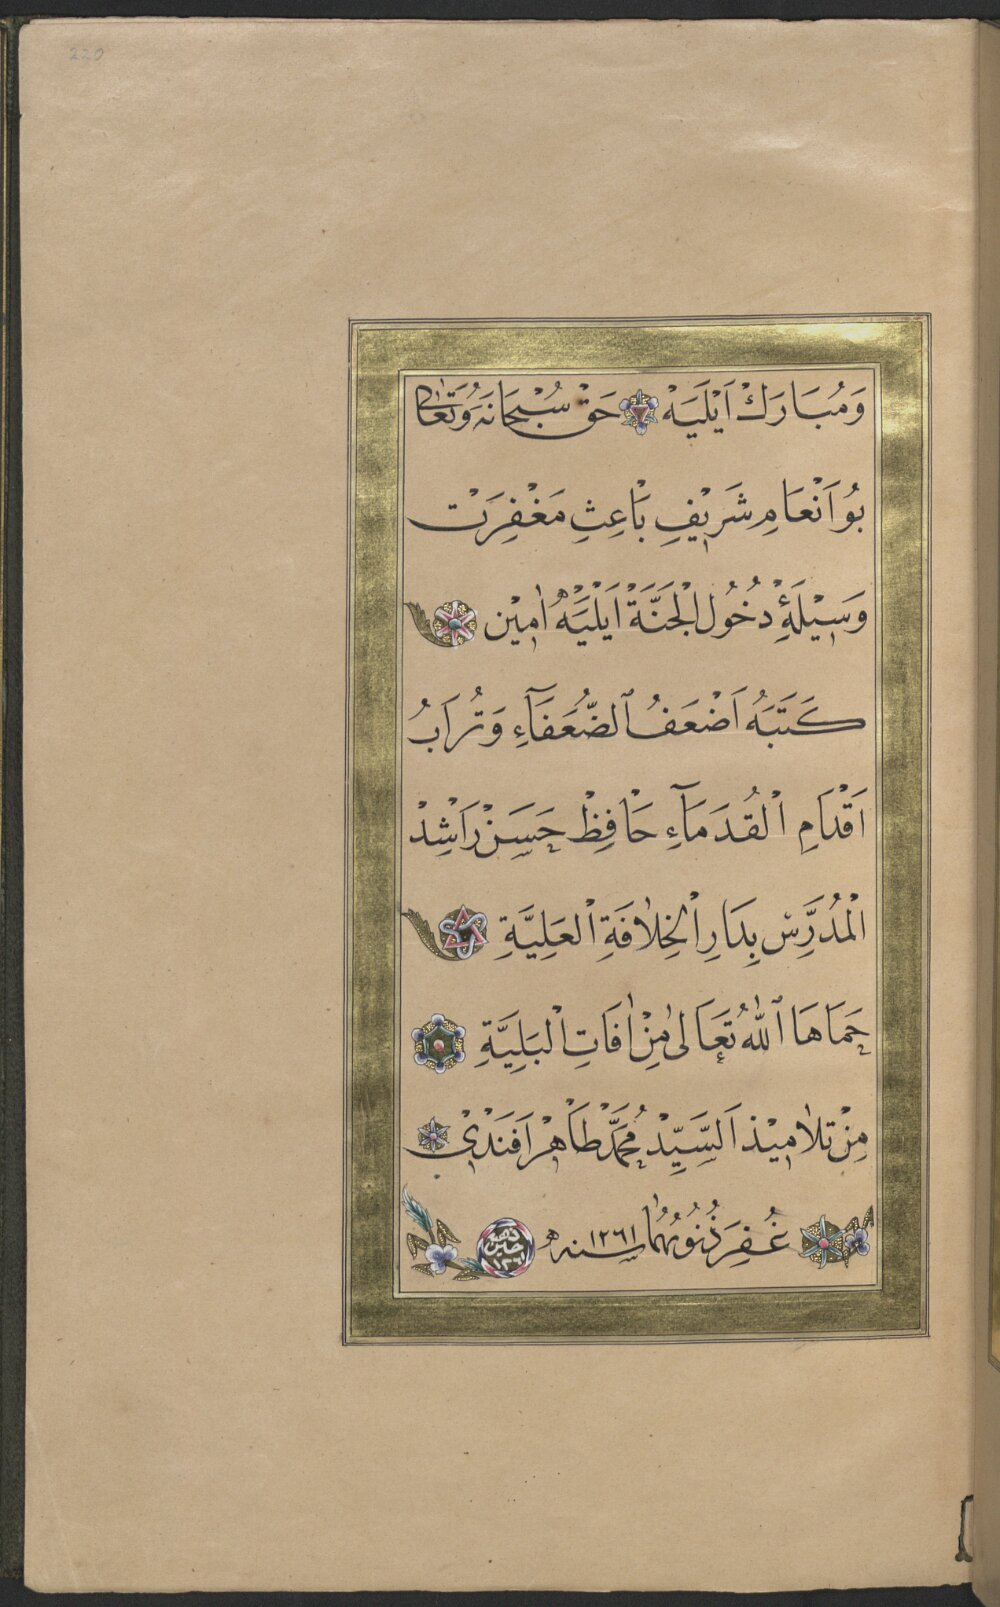 220
وَمُبَارَكْ اَيْلَيَهْ حَقْ سُبْحَانَهُ وَتَعَالٰى
بُو اَنْعَامِ شَرِيْفِ بَاْعِثِ مَغْفِرَتْ
وَسِيْلَهِٔ دُخُولِ الْجَنَّةْ اَيْلَيَهْ اٰمِيْن
كَتَبَهُ اَضْعَفُ الضُّعَفَآءِ وَتُرَابُ
اَقْدَامِ الْقُدَمَآءِ حَافِظْ حَسَنْ رَاشِدْ
الْمُدَرِّسْ بِدَارِ الْخِلَافَةِ الْعَلِيَّةِ
حَمَاهَا اللّٰهُ تَعَالٰى مِنْ اٰفَاتِ الْبَلِيَّةِ
مِنْ تَلَامِيْذِ اَلسَّيِّدْ مُحَمَّدْ طَاهِرْ اَفَنْدِيْ
غُفِرَ ذُنُوبُهُمَا سنه ١٢٦١
ذهبه
حسين
١٢٦١